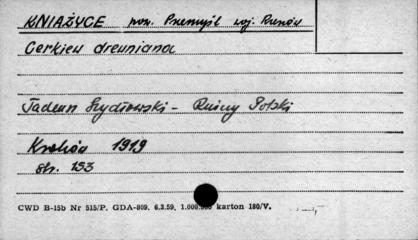 KNIAŻYCE pow. Przemyśl woj. Rzeszów
Cerkiew drewniana
Tadeusz Szydłowski - Ruiny Polski
Kraków 1919
str. 153
CWD B-15b Nr 515/P. GDA-809. 6.3.59. 1.000.000 karton 180/V.